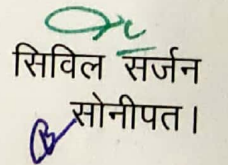 सिविल सर्जन
सोनीपत।